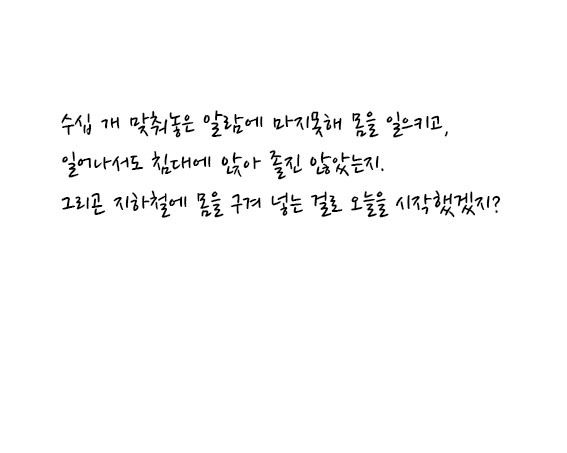 수십 개 맞춰놓은 알람에 마지못해 몸을 일으키고,
일어나서도 침대에 앉아 졸진 않았는지.
그리곤 지하철에 몸을 구겨 넣는 걸로 오늘을 시작했겠지?